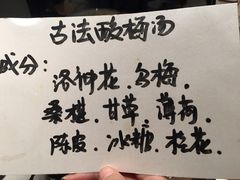 古法酸梅汤
成分:
洛神花.乌梅.
桑椹.甘草.薄荷.
陈皮.冰糖.桂花.